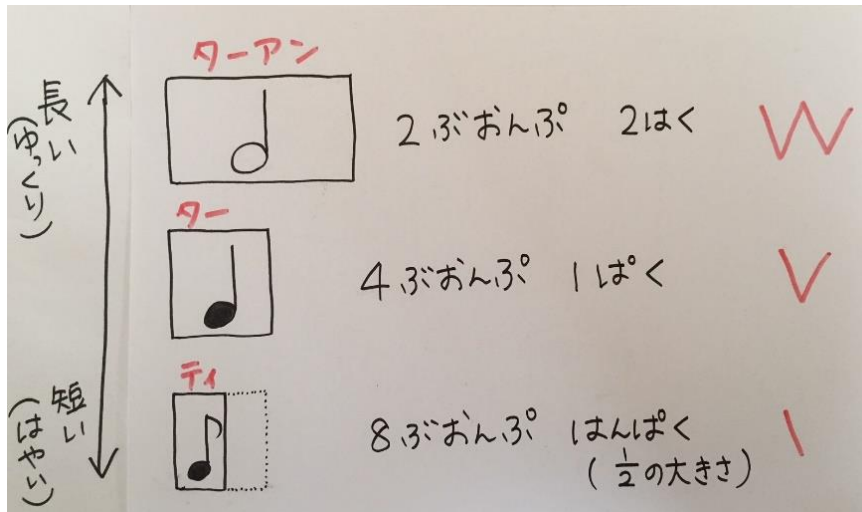 長い
(ゆっくり)
ターアン
2ぶおんぷ 2はく
ター
4ぶおんぷ 1ぱく
短い
(はやい)
ティ
8ぶおんぷ はんぱく
(1/2の大きさ)